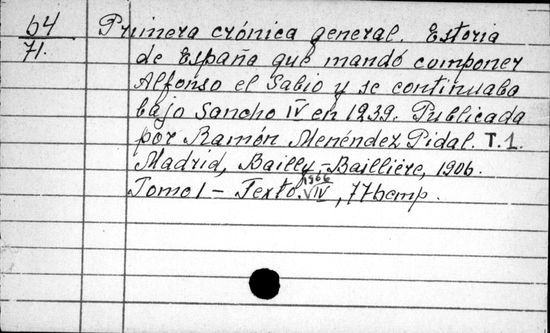 64
71.
Primera crónica general. Estoria
de España que mandó componer
Alfonso el Sabio y se continuaba
bajo Sancho IV en 1239. Publicada
por Ramón Menéndez Pidal. T.1.
Madrid, Bailly-Baillière, 1906.
Tomo I - Texto. 1966 VIV, 776 cmp.